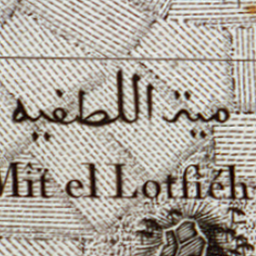 مية اللطفيه
Mît el Lotfiéh